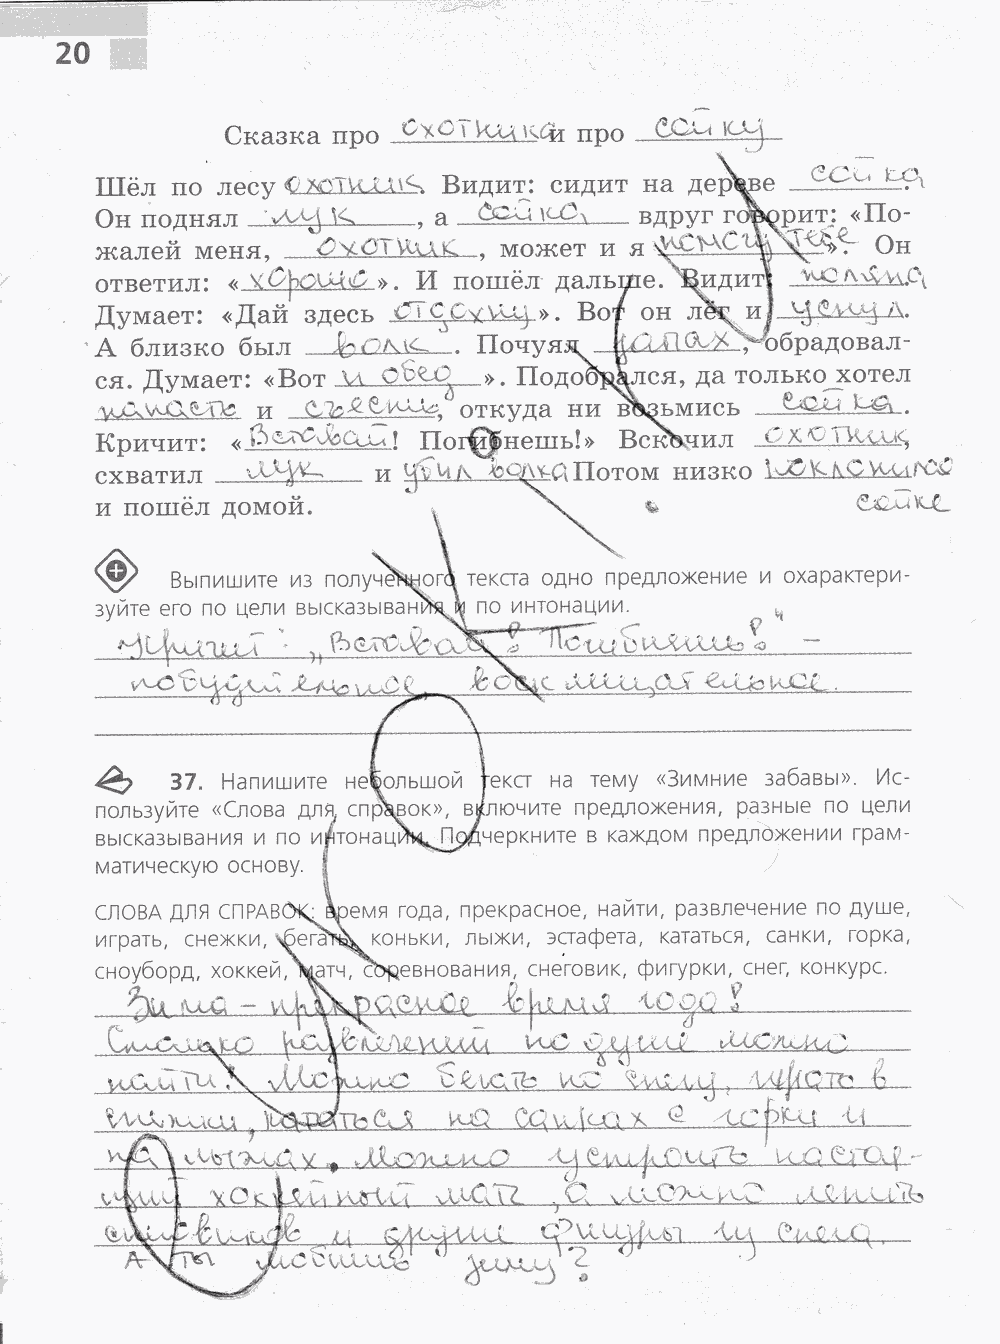 20
Сказка про охотника и про сойку
Шёл по лесу охотник. Видит: сидит на дереве сойка.
Он поднял лук, а сойка вдруг говорит: «По-
жалей меня, охотник, может и я помогу тебе». Он
ответил: «хорошо». И пошёл дальше. Видит: поляна.
Думает: «Дай здесь отдохну». Вот он лёг и уснул.
А близко был волк. Почуял запах, обрадовал-
ся. Думает: «Вот и обед». Подобрался, да только хотел
напасть и съесть, откуда ни возьмись сойка.
Кричит: «Вставай! Погибнешь!» Вскочил охотник,
схватил лук и убил волка Потом низко поклонился
и пошёл домой. сойке
Выпишите из полученного текста одно предложение и охарактери-
зуйте его по цели высказывания и по интонации.
Кричит: „Вставай! Погибнешь!" –
побудительное, восклицательное.
37. Напишите небольшой текст на тему «Зимние забавы». Ис-
пользуйте «Слова для справок», включите предложения, разные по цели
высказывания и по интонации. Подчеркните в каждом предложении грам-
матическую основу.
СЛОВА ДЛЯ СПРАВОК: время года, прекрасное, найти, развлечение по душе,
играть, снежки, бегать, коньки, лыжи, эстафета, кататься, санки, горка,
сноуборд, хоккей, матч, соревнования, снеговик, фигурки, снег, конкурс.
Зима – прекрасное время года!
Столько развлечений по душе можно
найти! Можно бегать по снегу, играть в
снежки, кататься на санках с горки и
на лыжах. Можно устроить настоя-
щий хоккейный матч, а можно лепить
снеговиков и другие фигуры из снега.
А ты любишь зиму?